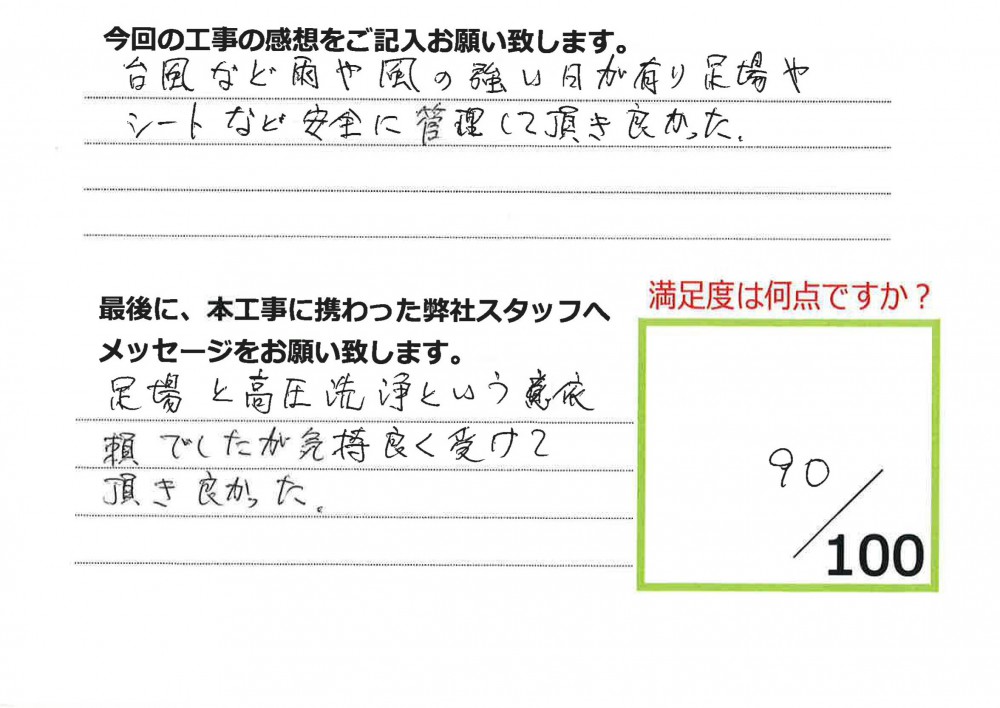 今回の工事の感想をご記入お願い致します。
台風など雨や風の強い日が有り足場や
シートなど安全に管理して頂き良かった。
最後に、本工事に携わった弊社スタッフへ
メッセージをお願い致します。
足場と高圧洗浄という依
頼でしたが気持良く受けて
頂き良かった。
満足度は何点ですか？
90
100